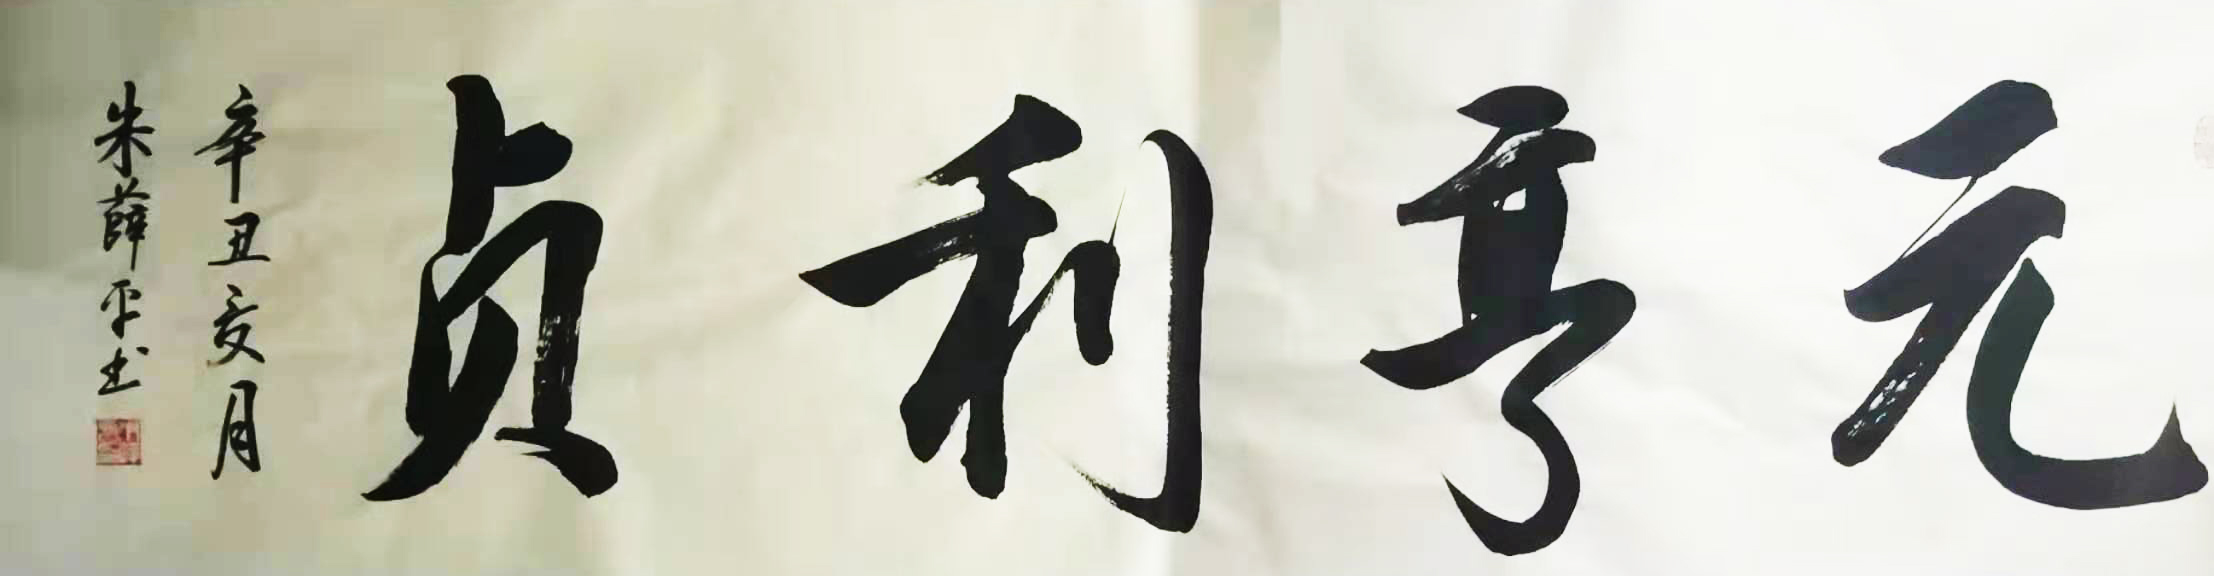 元亨利贞
辛丑亥月
朱薛平书